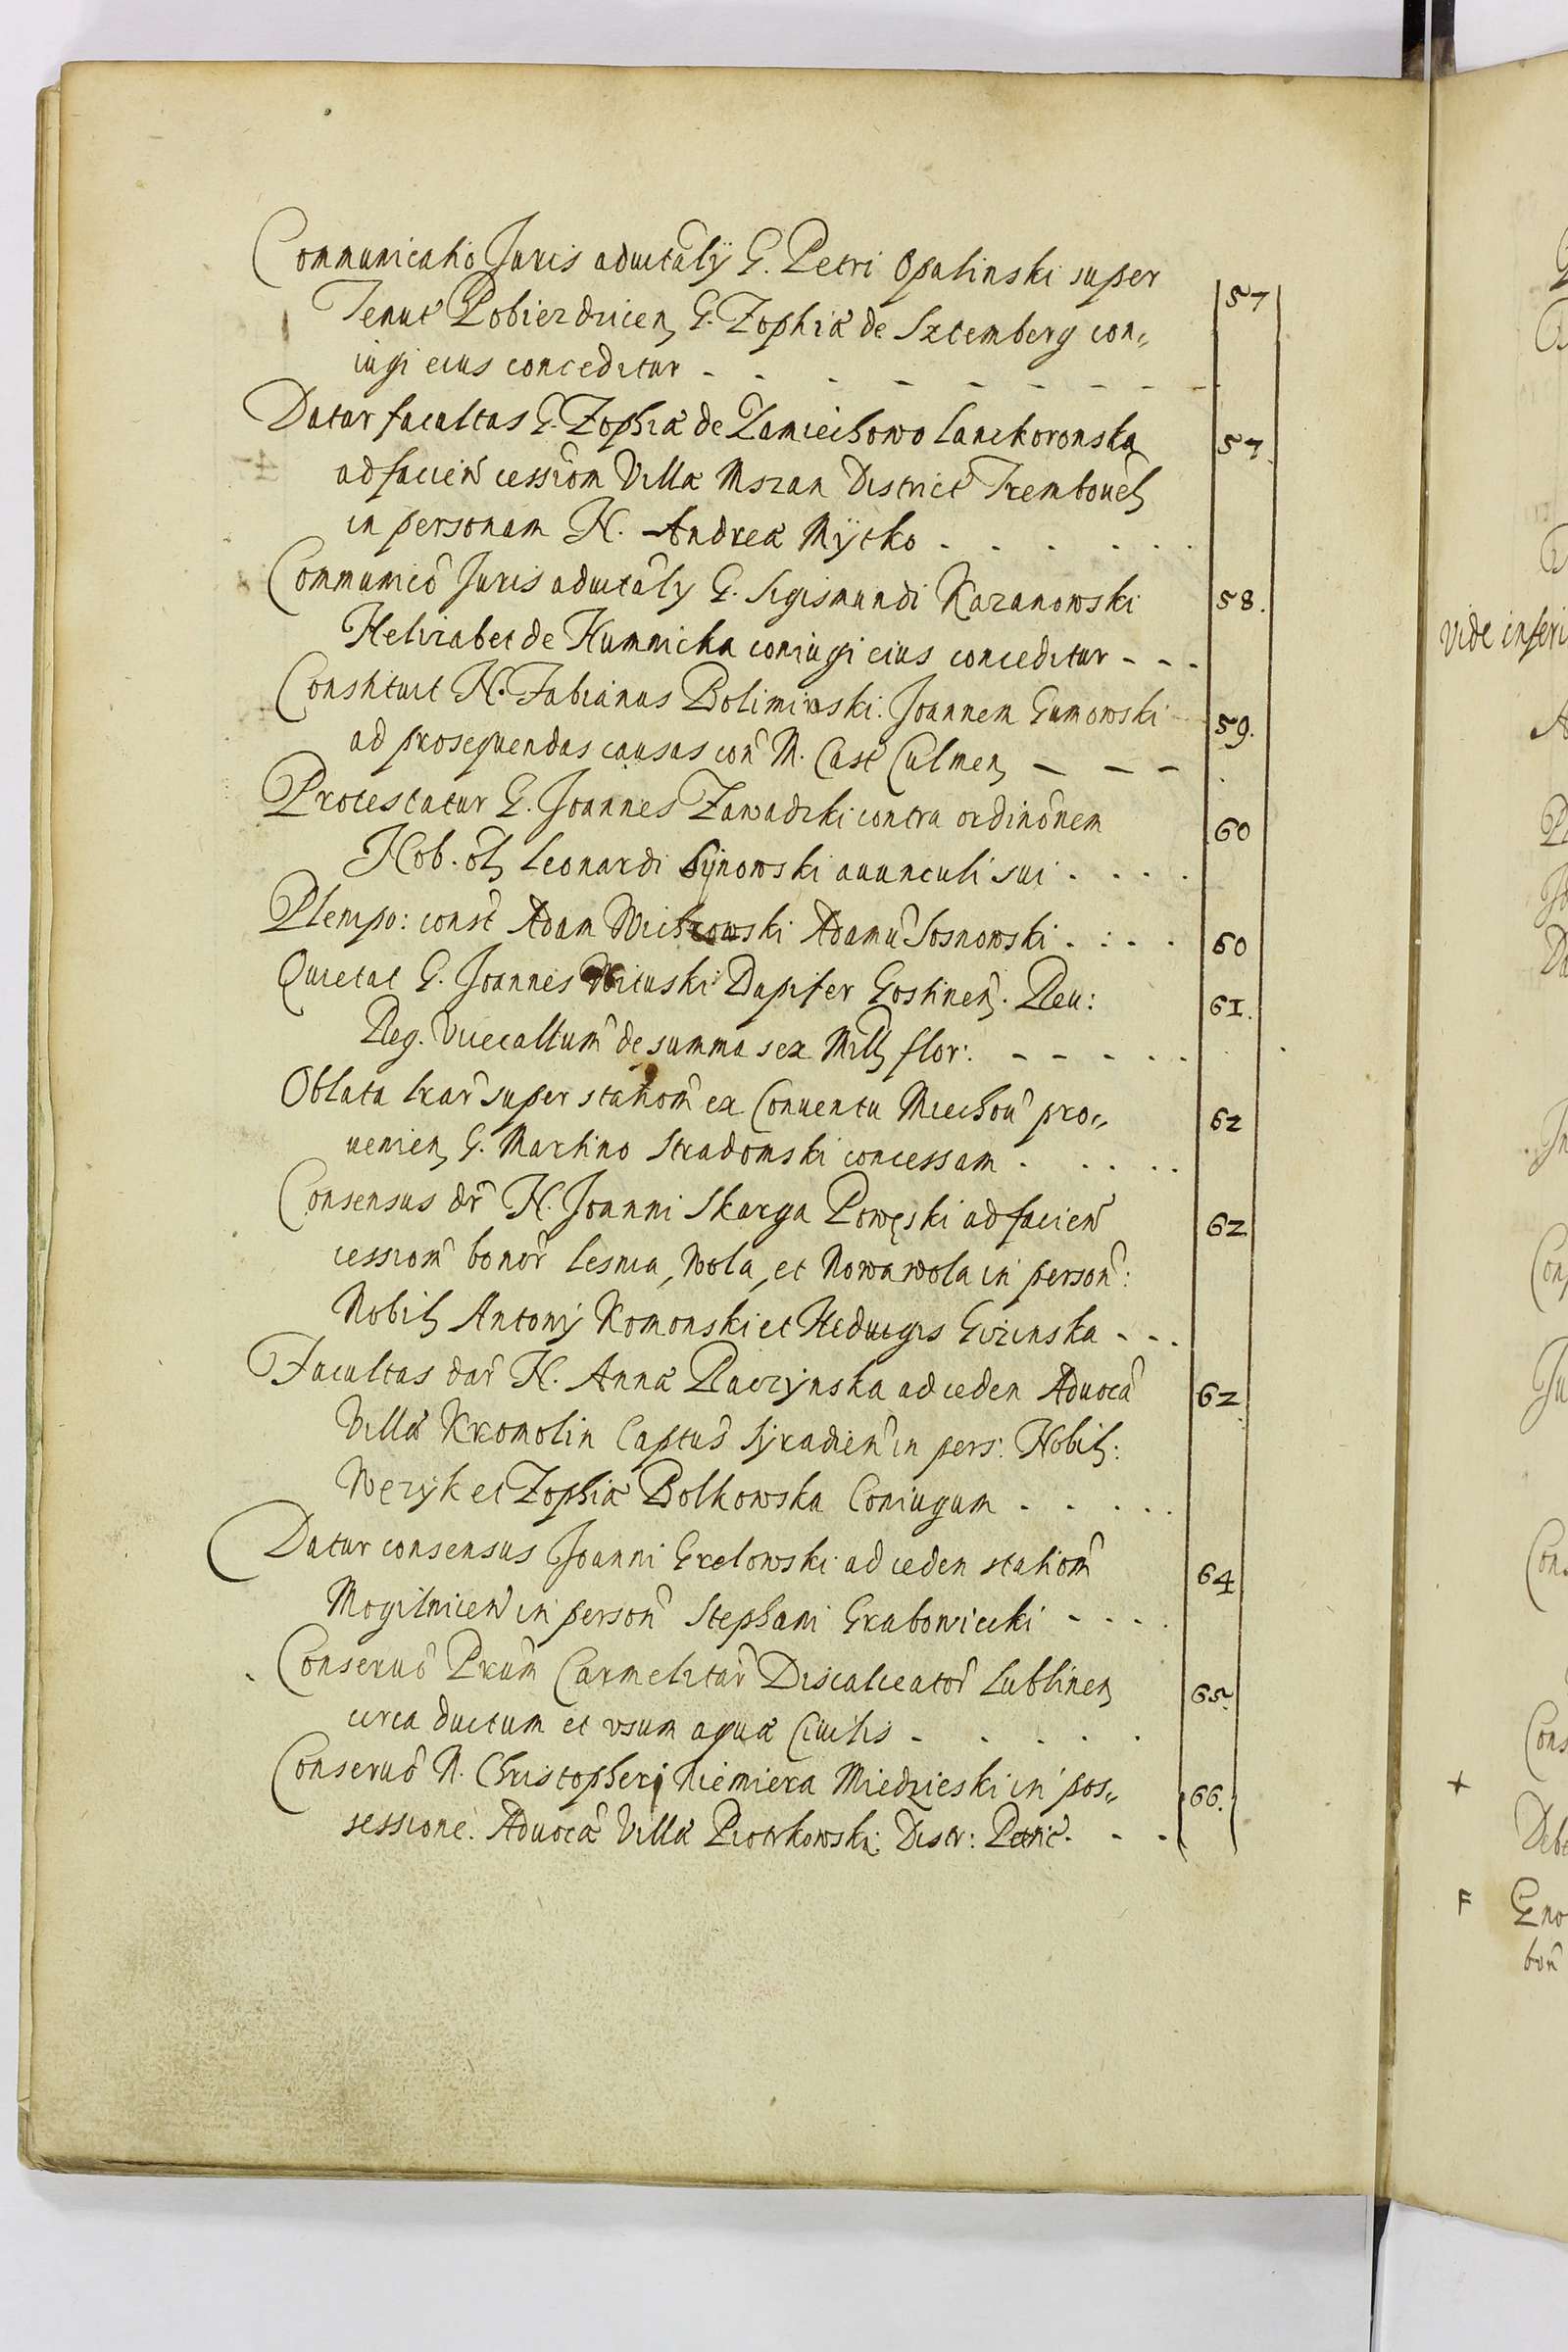 Communicatio Juris aduitalÿ G. Petri Opalinski super 57
Tenut Pobiezdricen, G. Zophiæ de Sztemberg con„
iugi eius conceditur - - - - - - - -
Datur facultas G. Zophiæ de Zamiechowo Lanckoronska 57
ad facien̄ cessiom̄ Villæ Mszan District Trembouel
in personam N. Andreæ Mÿtko . . . . . .
Communicō Juris aduitaly G. Sigismundi Kazanowski 58.
Helizabet de Humnicka coniugi eius conceditur - - -
Constituit N. Fabianus Boliminski Joannem Gumowski 59.
ad prosequendas causas con̄ M. Cast Culmen, - - -
Protestatur G. Joannes Zawadzki contra ordinōnem 60
Nob. ol, Leonardi Synowski auunculi sui . . . .
Plempo: const Adam Adamū Sosnowski . : . . 60
Quietat G. Joannes Wituski Dapifer Gostinen̄. Reu: 61.
Reg. Viecaltum̄ de summa sex Mill, flor: - - - . .
Oblata lrar̄ super statiom̄ ex Conuentu Miechou pro„ 62
uenien, G. Martino Stradomski concessam . . . . .
Consensus dr̄ N. Joanni Skarga Powęski ad facien̄ 62
cessiom̄ bonor̄ Lesnia, Wola, et Nowa wola in person̄:
Nobil, Antonÿ Komonski et Heduigis Gizinska - - -
Facultas dar̄ N. Annæ Raczÿnska ad ceden Aduocā 62
Villæ Kromolin Captus Sÿradien̄ in pers: Nobil,:
Wezÿk et Zophiæ Bolkowska Coniugum . . . . .
Datur consensus Joanni Grelowski ad ceden statiom̄ 64
Mogilnicen̄ in person̄ Stephani Grabowiecki - - - .
Conseruō Prum̄ Carmelitar̄ Discalceator̄ Lublinen, 65.
circa ductum et vsum aquæ Ciuilis . . . . .
Conseruō N. Christopheri Niemiera Miedzieski in pos„ 66.
sessione Aduocā Villæ Piotrkowska Distr: . . .
vide inferi